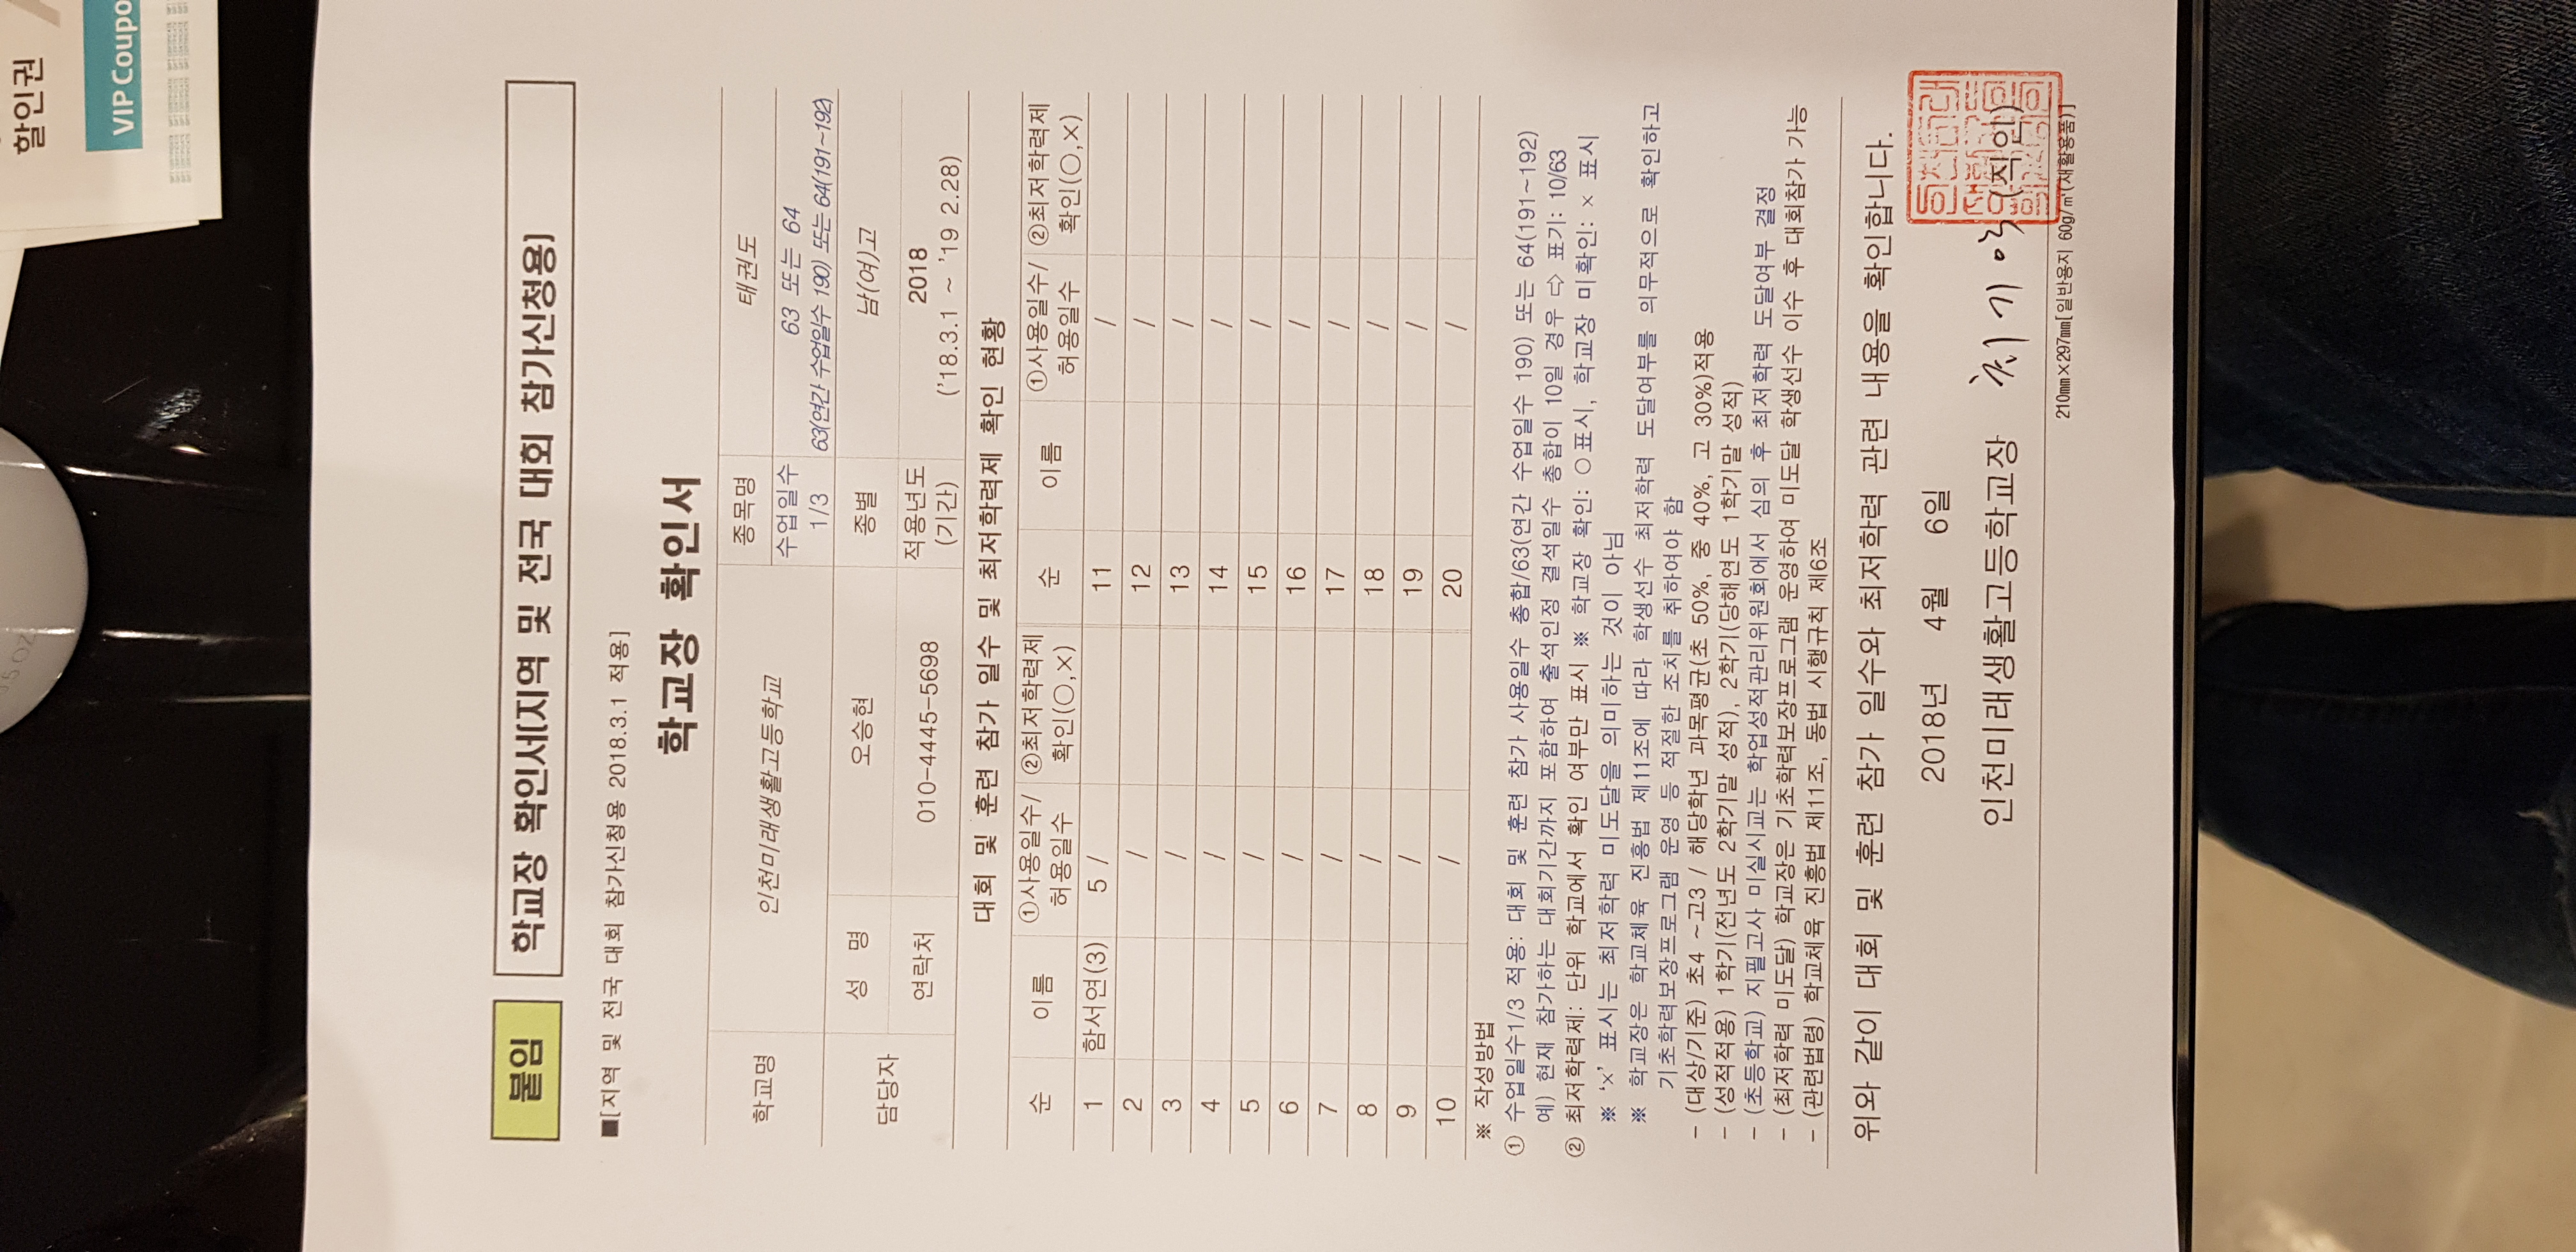 할인권
VIP Coupo
붙임
학교장 확인서(지역 및 전국 대회 참가신청용)
■[지역 및 전국 대회 참가신청용 2018.3.1 적용]
학교장 확인서
학교명 인천미래생활고등학교 종목명 태권도
수업일수 1/3 63 또는 64
63(연간 수업일수 190) 또는 64(191~192)
담당자 성 명 오승현 종별 남(여)고
연락처 010-4445-5698 적용년도 (기간) 2018
('18.3.1 ~ '19 2.28)
대회 및 훈련 참가 일수 및 최저학력제 확인 현황
순 이름 ①사용일수/허용일수 ②최저학력제 확인(○,×) 순 이름 ①사용일수/허용일수 ②최저학력제 확인(○,×)
1 함서연(3) 5 / 11 /
2 / 12 /
3 / 13 /
4 / 14 /
5 / 15 /
6 / 16 /
7 / 17 /
8 / 18 /
9 / 19 /
10 / 20 /
※ 작성방법
① 수업일수1/3 적용: 대회 및 훈련 참가 사용일수 총합/63(연간 수업일수 190) 또는 64(191~192)
예) 현재 참가하는 대회기간까지 포함하여 출석인정 결석일수 총합이 10일 경우 ⇨ 표기: 10/63
② 최저학력제: 단위 학교에서 확인 여부만 표시 ※ 학교장 확인: ○표시, 학교장 미확인: × 표시
※ '×' 표시는 최저학력 미도달을 의미하는 것이 아님
※ 학교장은 학교체육 진흥법 제11조에 따라 학생선수 최저학력 도달여부를 의무적으로 확인하고
기초학력보장프로그램 운영 등 적절한 조치를 취하여야 함
- (대상/기준) 초4 ~고3 / 해당학년 과목평균(초 50%, 중 40%, 고 30%)적용
- (성적적용) 1학기(전년도 2학기말 성적), 2학기(당해연도 1학기말 성적)
- (초등학교) 지필고사 미실시교는 학업성적관리위원회에서 심의 후 최저학력 도달여부 결정
- (최저학력 미도달) 학교장은 기초학력보장프로그램 운영하여 미도달 학생선수 이수 후 대회참가 가능
- (관련법령) 학교체육 진흥법 제11조, 동법 시행규칙 제6조
위와 같이 대회 및 훈련 참가 일수와 최저학력 관련 내용을 확인합니다.
2018년 4월 6일
인천미래생활고등학교장 (직인)
210㎜×297㎜[일반용지 60g/㎡(재활용품)]